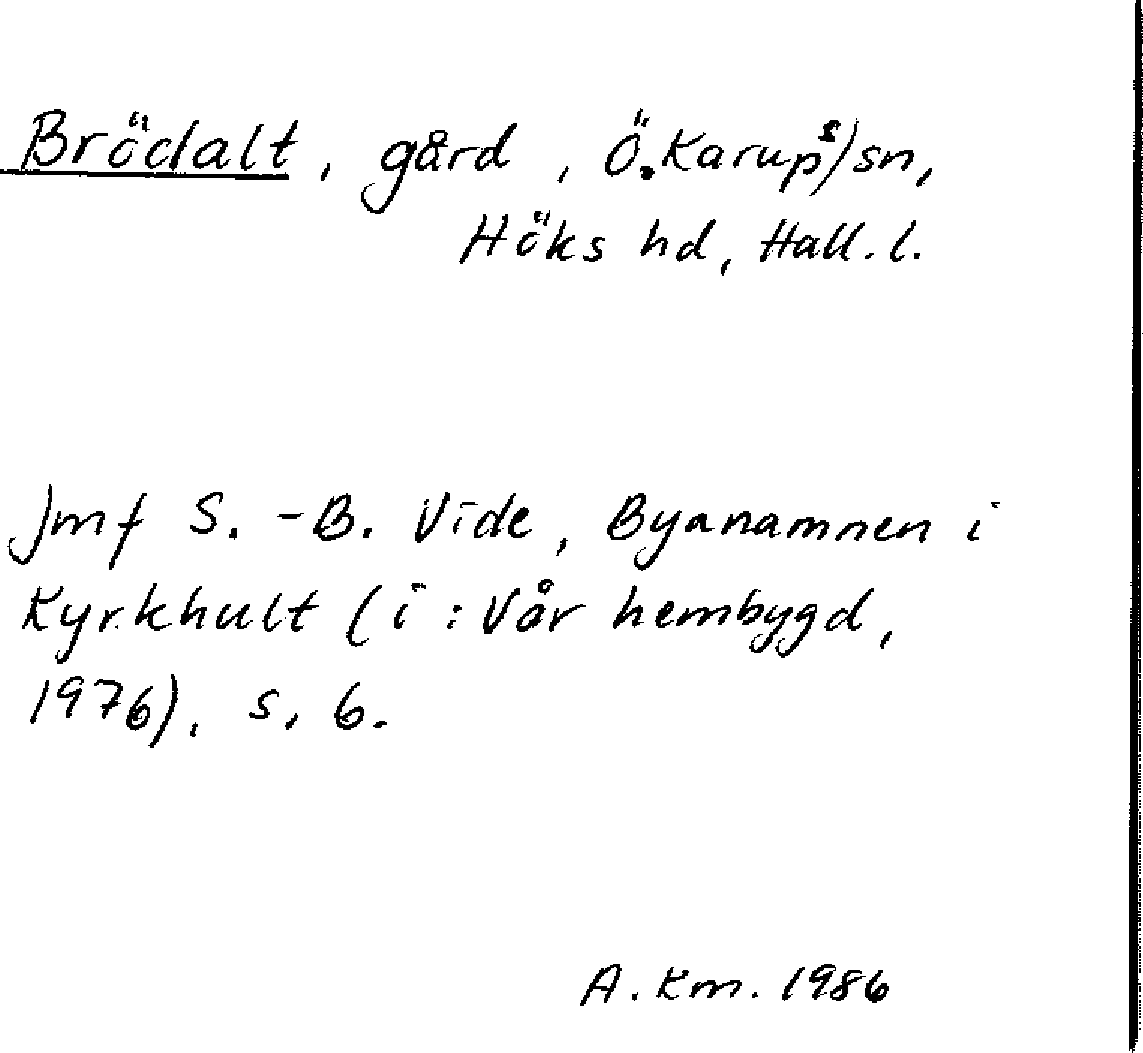 Brödalt, gård, Ö. Karups) sn,
Höks hd, Hall. l.
Jmf S. -B. Vide, Byanamnen i
Kyrkhult (i : Vår hembygd,
1976), s, 6.
A. Km. 1986